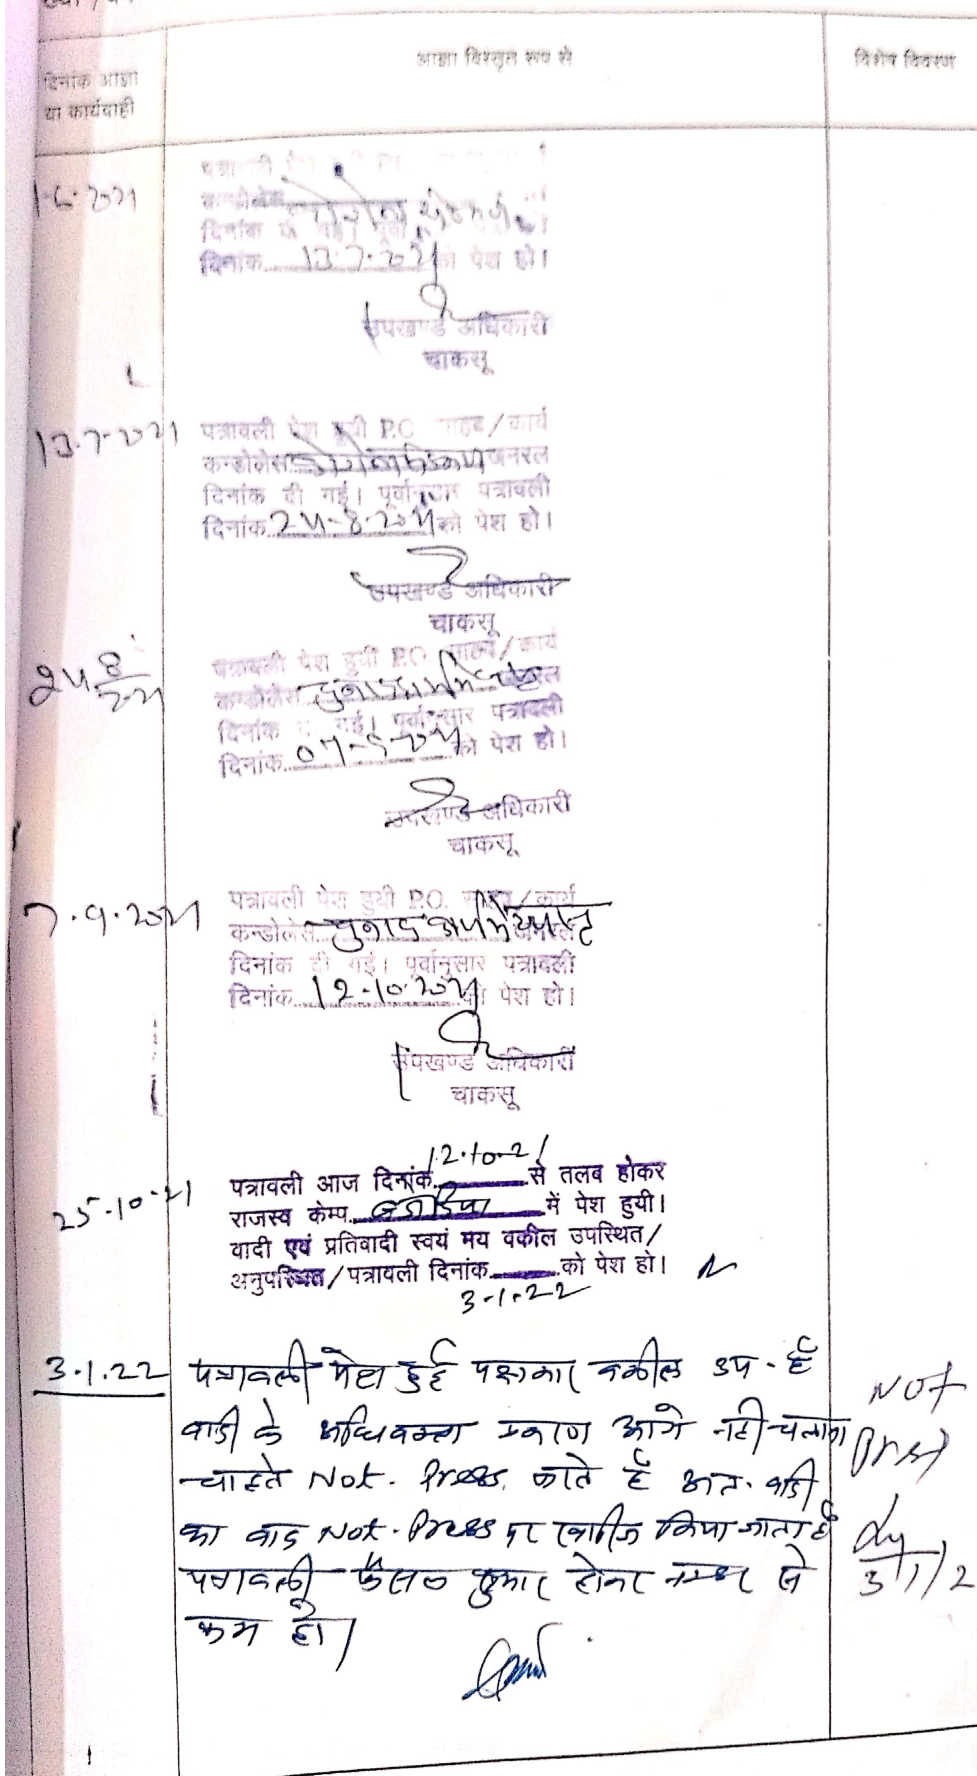 आज्ञा विस्तृत रूप से
विशेष विवरण
दिनांक आज्ञा
या कार्यवाही
पत्रावली
1-6-2021
दिनांक
दिनांक 13.7.2021 को पेश हो।
उपखण्ड अधिकारी
चाकसू
13.7-2021
पत्रावली पेश हुयी P.O. साहब/कार्य
कन्डोलेंस
दिनांक दी गई। पूर्वानुसार पत्रावली
दिनांक 24-8-2021 को पेश हो।
उपखण्ड अधिकारी
चाकसू
24 8/2021
पत्रावली पेश हुयी P.O. साहब/कार्य
कन्डोलेंस
दिनांक दी गई। पूर्वानुसार पत्रावली
दिनांक 07-9-2021 को पेश हो।
उपखण्ड अधिकारी
चाकसू
7.9.2021
पत्रावली पेश हुयी P.O. साहब/कार्य
कन्डोलेंस चुनाव कार्य में व्यस्त
दिनांक दी गई। पूर्वानुसार पत्रावली
दिनांक 12.10.2021 को पेश हो।
उपखण्ड अधिकारी
चाकसू
25-10-21
पत्रावली आज दिनांक 12.10.21 से तलब होकर
राजस्व केम्प में पेश हुयी।
वादी एवं प्रतिवादी स्वयं मय वकील उपस्थित/
अनुपस्थित/पत्रावली दिनांक को पेश हो।
3-1-22
3.1.22
पत्रावली पेश हुई पक्षकार वकील उप. है
वादी के अधिवक्ता प्रकरण आगे नही चलाना
चाहते Not. Press. करते है अतः वादी
का वाद Not. Press पर खारिज किया जाता है
पत्रावली फैसल शुमार होकर नम्बर से
कम हो।
Not
Press
3/1/2